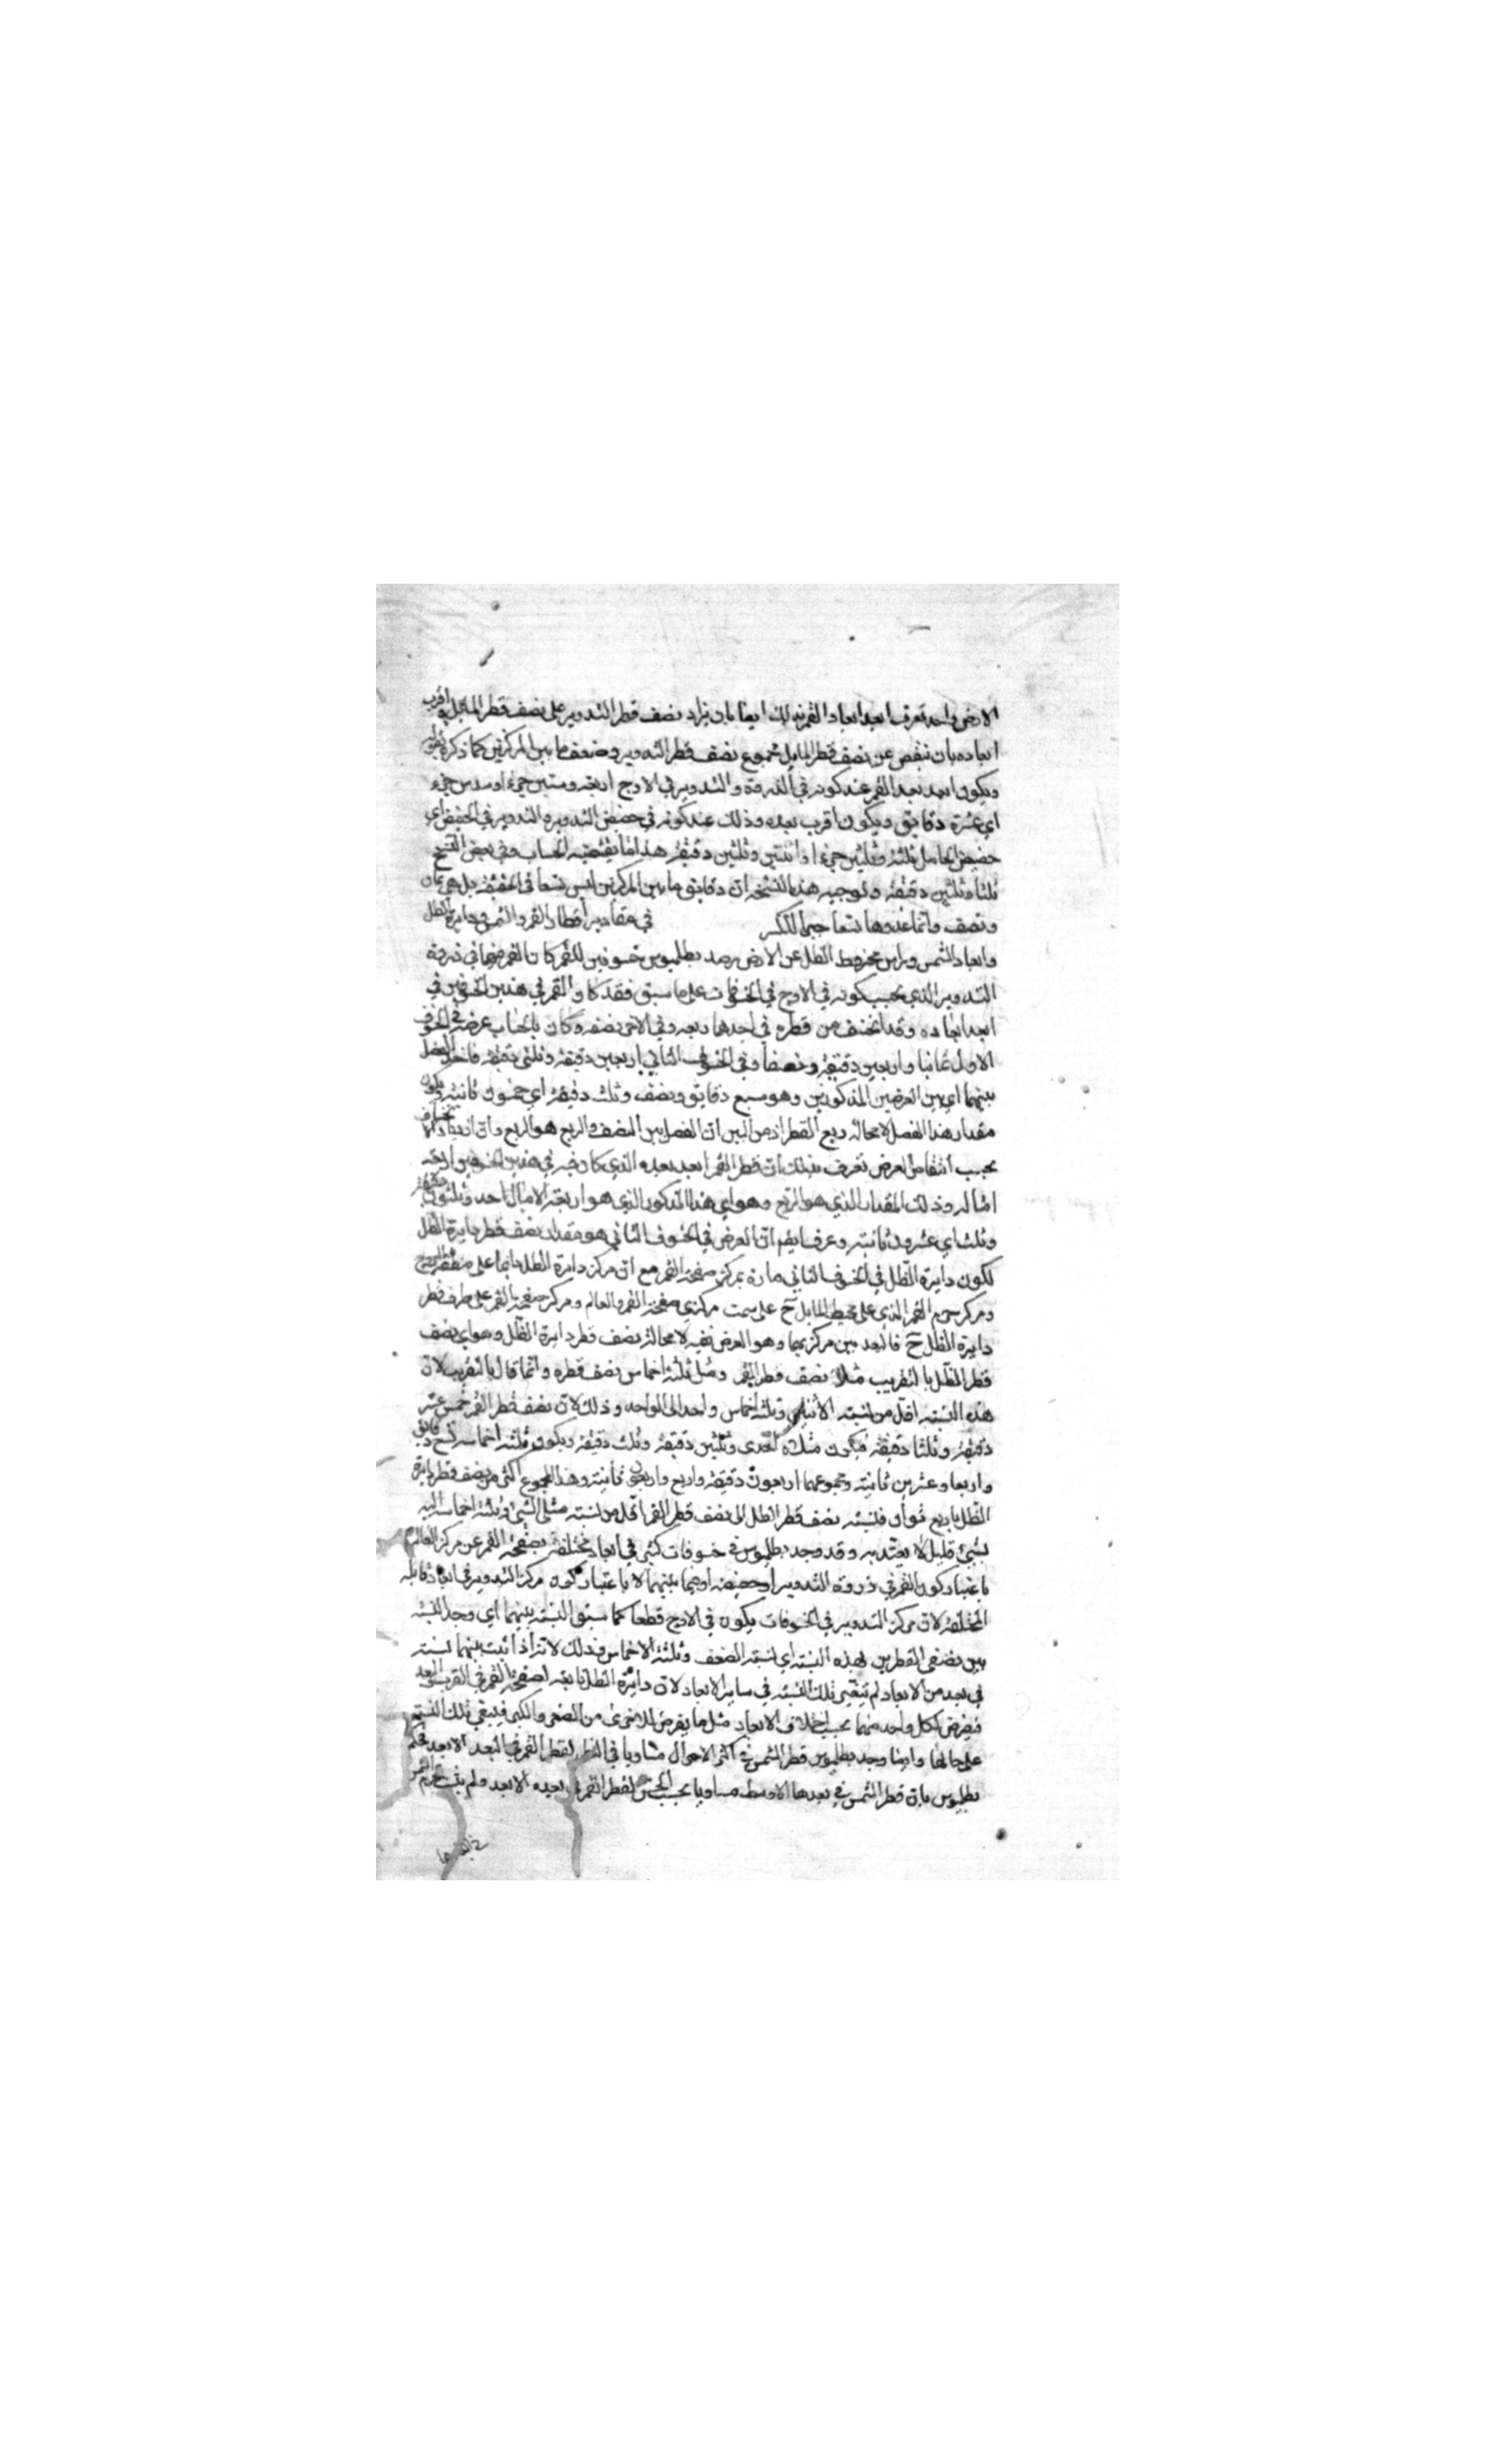 الارض واحد تعرف ابعد ابعاد القمر بذلك ايضا بان يزاد نصف قطر التدوير على نصف قطر المايل واقرب
ابعاده بان ننقص عن نصف قطر المايل مجموع نصف قطر التدوير وضعف ما بين المركزين كما ذكره بطلميوس
ويكون ابعد بعد القمر عند كونه في الذروة والتدوير في الاوج اربعة وستين جزءا وسدس جزء
اي عشرة دقايق ويكون اقرب بعده وذلك عند كونه في حضيض التدوير والتدوير في الحضيض اي
حضيض الحامل ثلثة وثلثين جزءا واثنتين وثلثين دقيقة هذا ما يقتضيه الحساب وفي بعض النسخ
ثلثا وثلثين دقيقة وتوجيه هذه النسخة ان دقايق ما بين المركزين ليس تسعا في الحقيقة بل هي ثمان
ونصف وانما عدوها تسعا جبرا للكسر في مقادير اقطار القمر والشمس ودايرة الظل
وابعاد الشمس وراس مخروط الظل عن الارض رصد بطلميوس خسوفين للقمر كان القمر فيهما في ذروة
التدوير الذي يجب كونه في الاوج في الخسوفات على ما سبق فقد كان القمر في هذين الخسوفين في
ابعد ابعاده وقد انخسف من قطره في احدهما ربعه وفي الاخر نصفه وكان بالحساب عرضه في الخسوف
الاول ثمانيا واربعين دقيقة ونصفا وفي الخسوف الثاني اربعين دقيقة وثلثي دقيقة فاخذ الفضل
بينهما اي بين العرضين المذكورين وهو سبع دقايق ونصف وثلث دقيقة اي خمسون ثانية ويكون
مقدار هذا الفضل لا محالة ربع القطر اذ من البين ان الفضل بين النصف والربع هو الربع وان ازدياد الانخساف
بحسب انتقاص العرض تعرف بذلك ان قطر القمر ابعد بعده الذي كان فيه في هذين الخسوفين اربعة
امثاله وذلك المقدار الذي هو الربع وهو اي هذا المذكور الذي هو اربعة الامثال احد وثلثون دقيقة
وثلث اي عشرون ثانية وعرف ايضا ان العرض في الخسوف الثاني هو مقدار نصف قطر دايرة الظل
لكون دايرة الظل في الخسوف الثاني مارة بمركز صفحة القمر مع ان مركز دايرة الظل دايما على منطقة البروج
ومركز جرم القمر الذي على محيط المايل ح على سمت مركزي صفحة القمر والعالم ومركز صفحة القمر على طرف قطر
دايرة الظل ح فالبعد بين مركزيهما وهو العرض نفسه لا محالة نصف قطر دايرة الظل وهو اي نصف
قطر الظل بالتقريب مثلا نصف قطر القمر ومثل ثلثة اخماس نصف قطره وانما قال بالتقريب لان
هذه النسبة اقل من نسبة الاثنين وثلثة اخماس واحد الى الواحد وذلك لان نصف قطر القمر خمس عشر
دقيقة وثلثا دقيقة فيكون مثلاه احدى وثلثين دقيقة وثلث دقيقة ويكون ثلثة اخماسه تسع دقايق
واربعا وعشرين ثانية ومجموعهما اربعون دقيقة واربع واربعون ثانية وهذا المجموع اكثر من نصف قطر دايرة
الظل باربع ثوان فنسبة نصف قطر الظل الى نصف قطر القمر اقل من نسبة مثلي الشئ وثلثة اخماسه اليه
بشئ قليل لا يعتد به وقد وجد بطلميوس في خسوفات كثيرة في ابعاد مختلفة بصفحة القمر عن مركز العالم
باعتبار كون القمر في ذروة التدوير او حضيضه او فيما بينهما لا باعتبار كون مركز التدوير في ابعاد
المختلفة لان مركز التدوير في الخسوفات يكون في الاوج قطعا كما سبق النسبة بينهما اي وجد النسبة
بين نصفي القطرين لهذه النسبة اي نسبة الضعف وثلثة الاخماس فذلك لانه اذا ثبت بينهما نسبة
في بعد من الابعاد لم يتغير تلك النسبة في ساير الابعاد لان دايرة الظل تابعة لصفحة القمر في القرب والبعد
فيعرض لكل واحد منهما بحسب اختلاف الابعاد مثل ما يعرض للاخرى من الصغر والكبر فيبقى تلك النسبة
على حالها وايضا وجد بطلميوس قطر الشمس في اكثر الاحوال مساويا في النظر لقطر القمر في البعد الابعد فحكم
بطلميوس بان قطر الشمس في بعدها الاوسط مساويا بحسب الحس لقطر القمر في بعده الابعد ولم